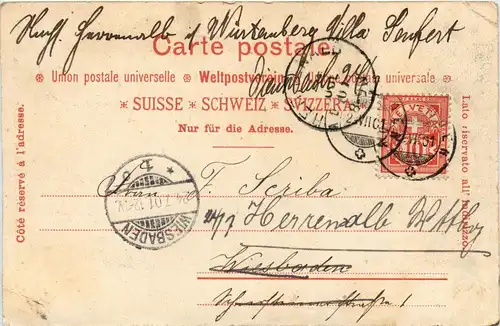 Nachf. Herrenalb i Würtenberg Villa Seufert
Carte postale.
Union postale universelle Weltpostverein postale universale
SUISSE SCHWEIZ SVIZZERA
Nur für die Adresse.
Côté réservé à l'adresse.
Lato riservato all' indirizzo.
HELVETIA
WIESBADEN
Herrn F. Scriba
24/7 Herrenalb Wttbg
Wiesbaden